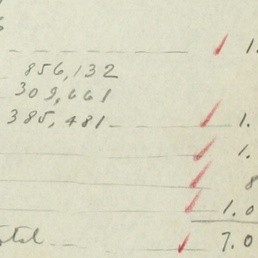 1.
856,132
309,661
385,481 1.
1.
8
1.0
7.0